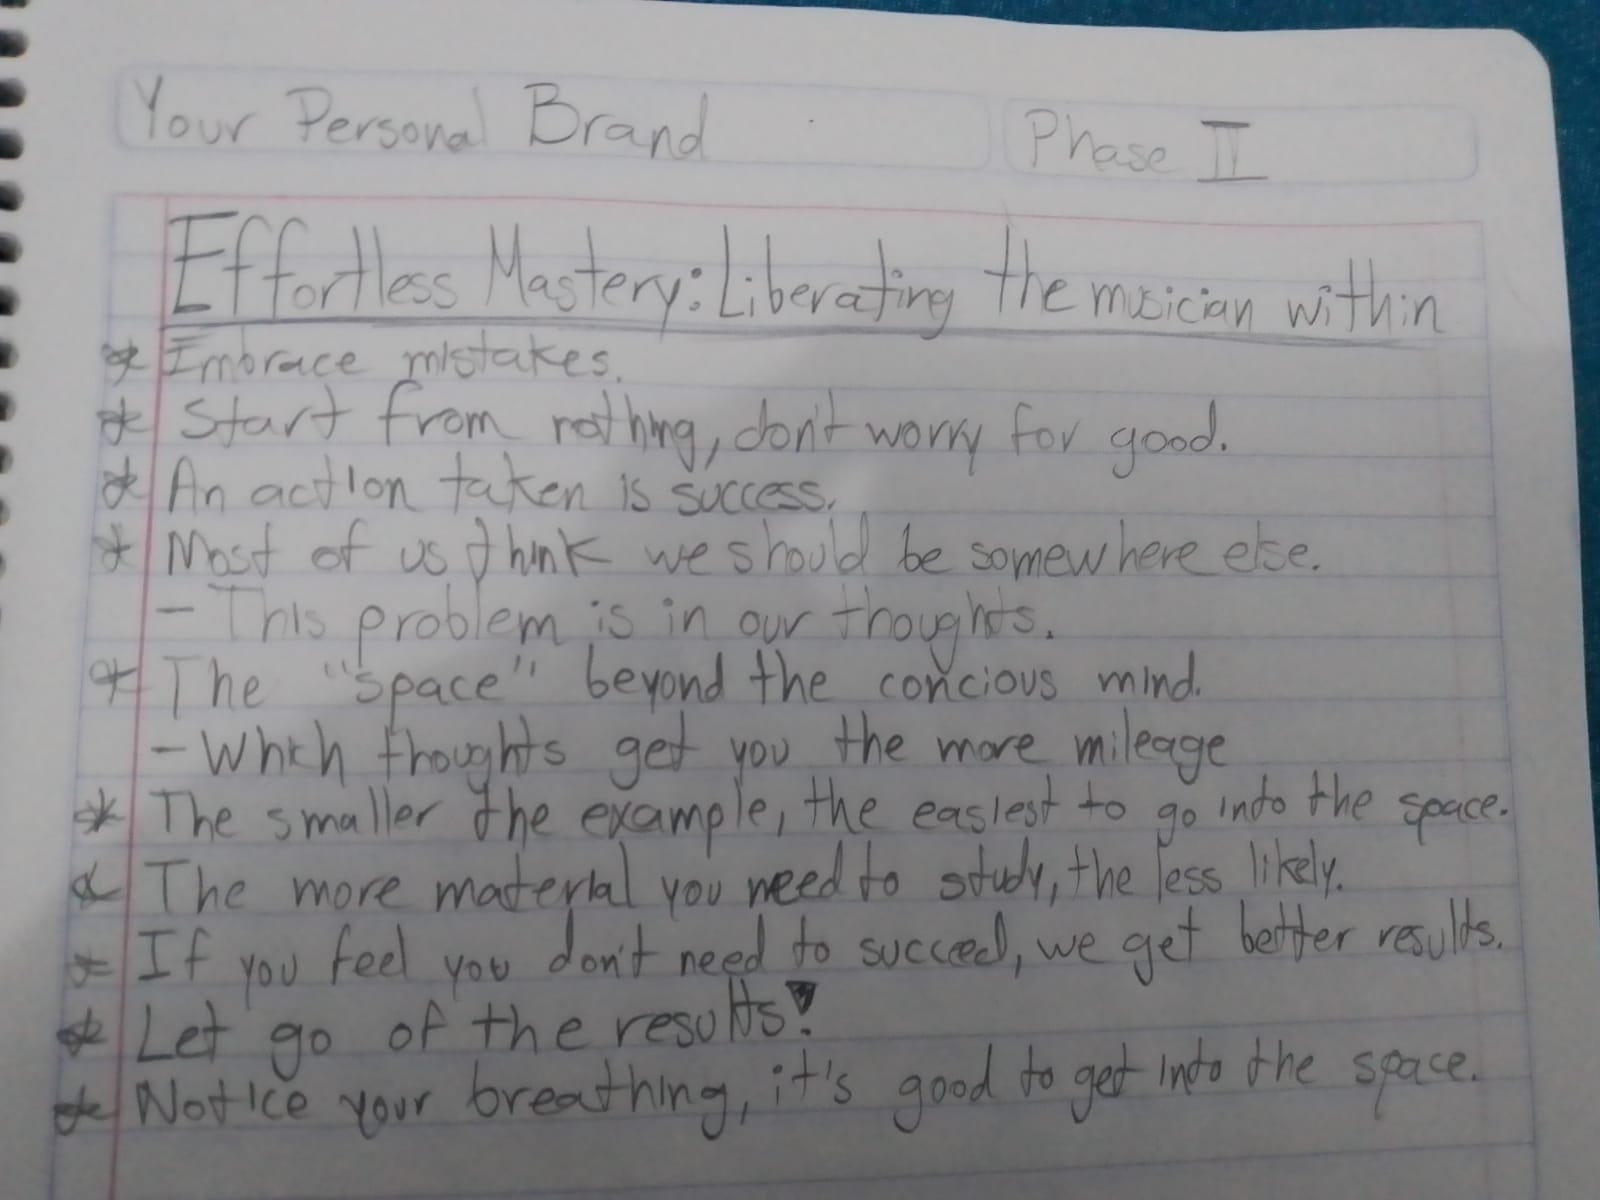 Your Personal Brand
Phase II
Effortless Mastery: Liberating the musician within
* Embrace mistakes.
* Start from nothing, don't worry for good.
* An action taken is success.
* Most of us think we should be somewhere else.
- This problem is in our thoughts.
* The "space" beyond the concious mind.
- Which thoughts get you the more mileage
* The smaller the example, the easiest to go into the space.
* The more material you need to study, the less likely.
* If you feel you don't need to succeed, we get better results.
* Let go of the results!
* Notice your breathing, it's good to get into the space.